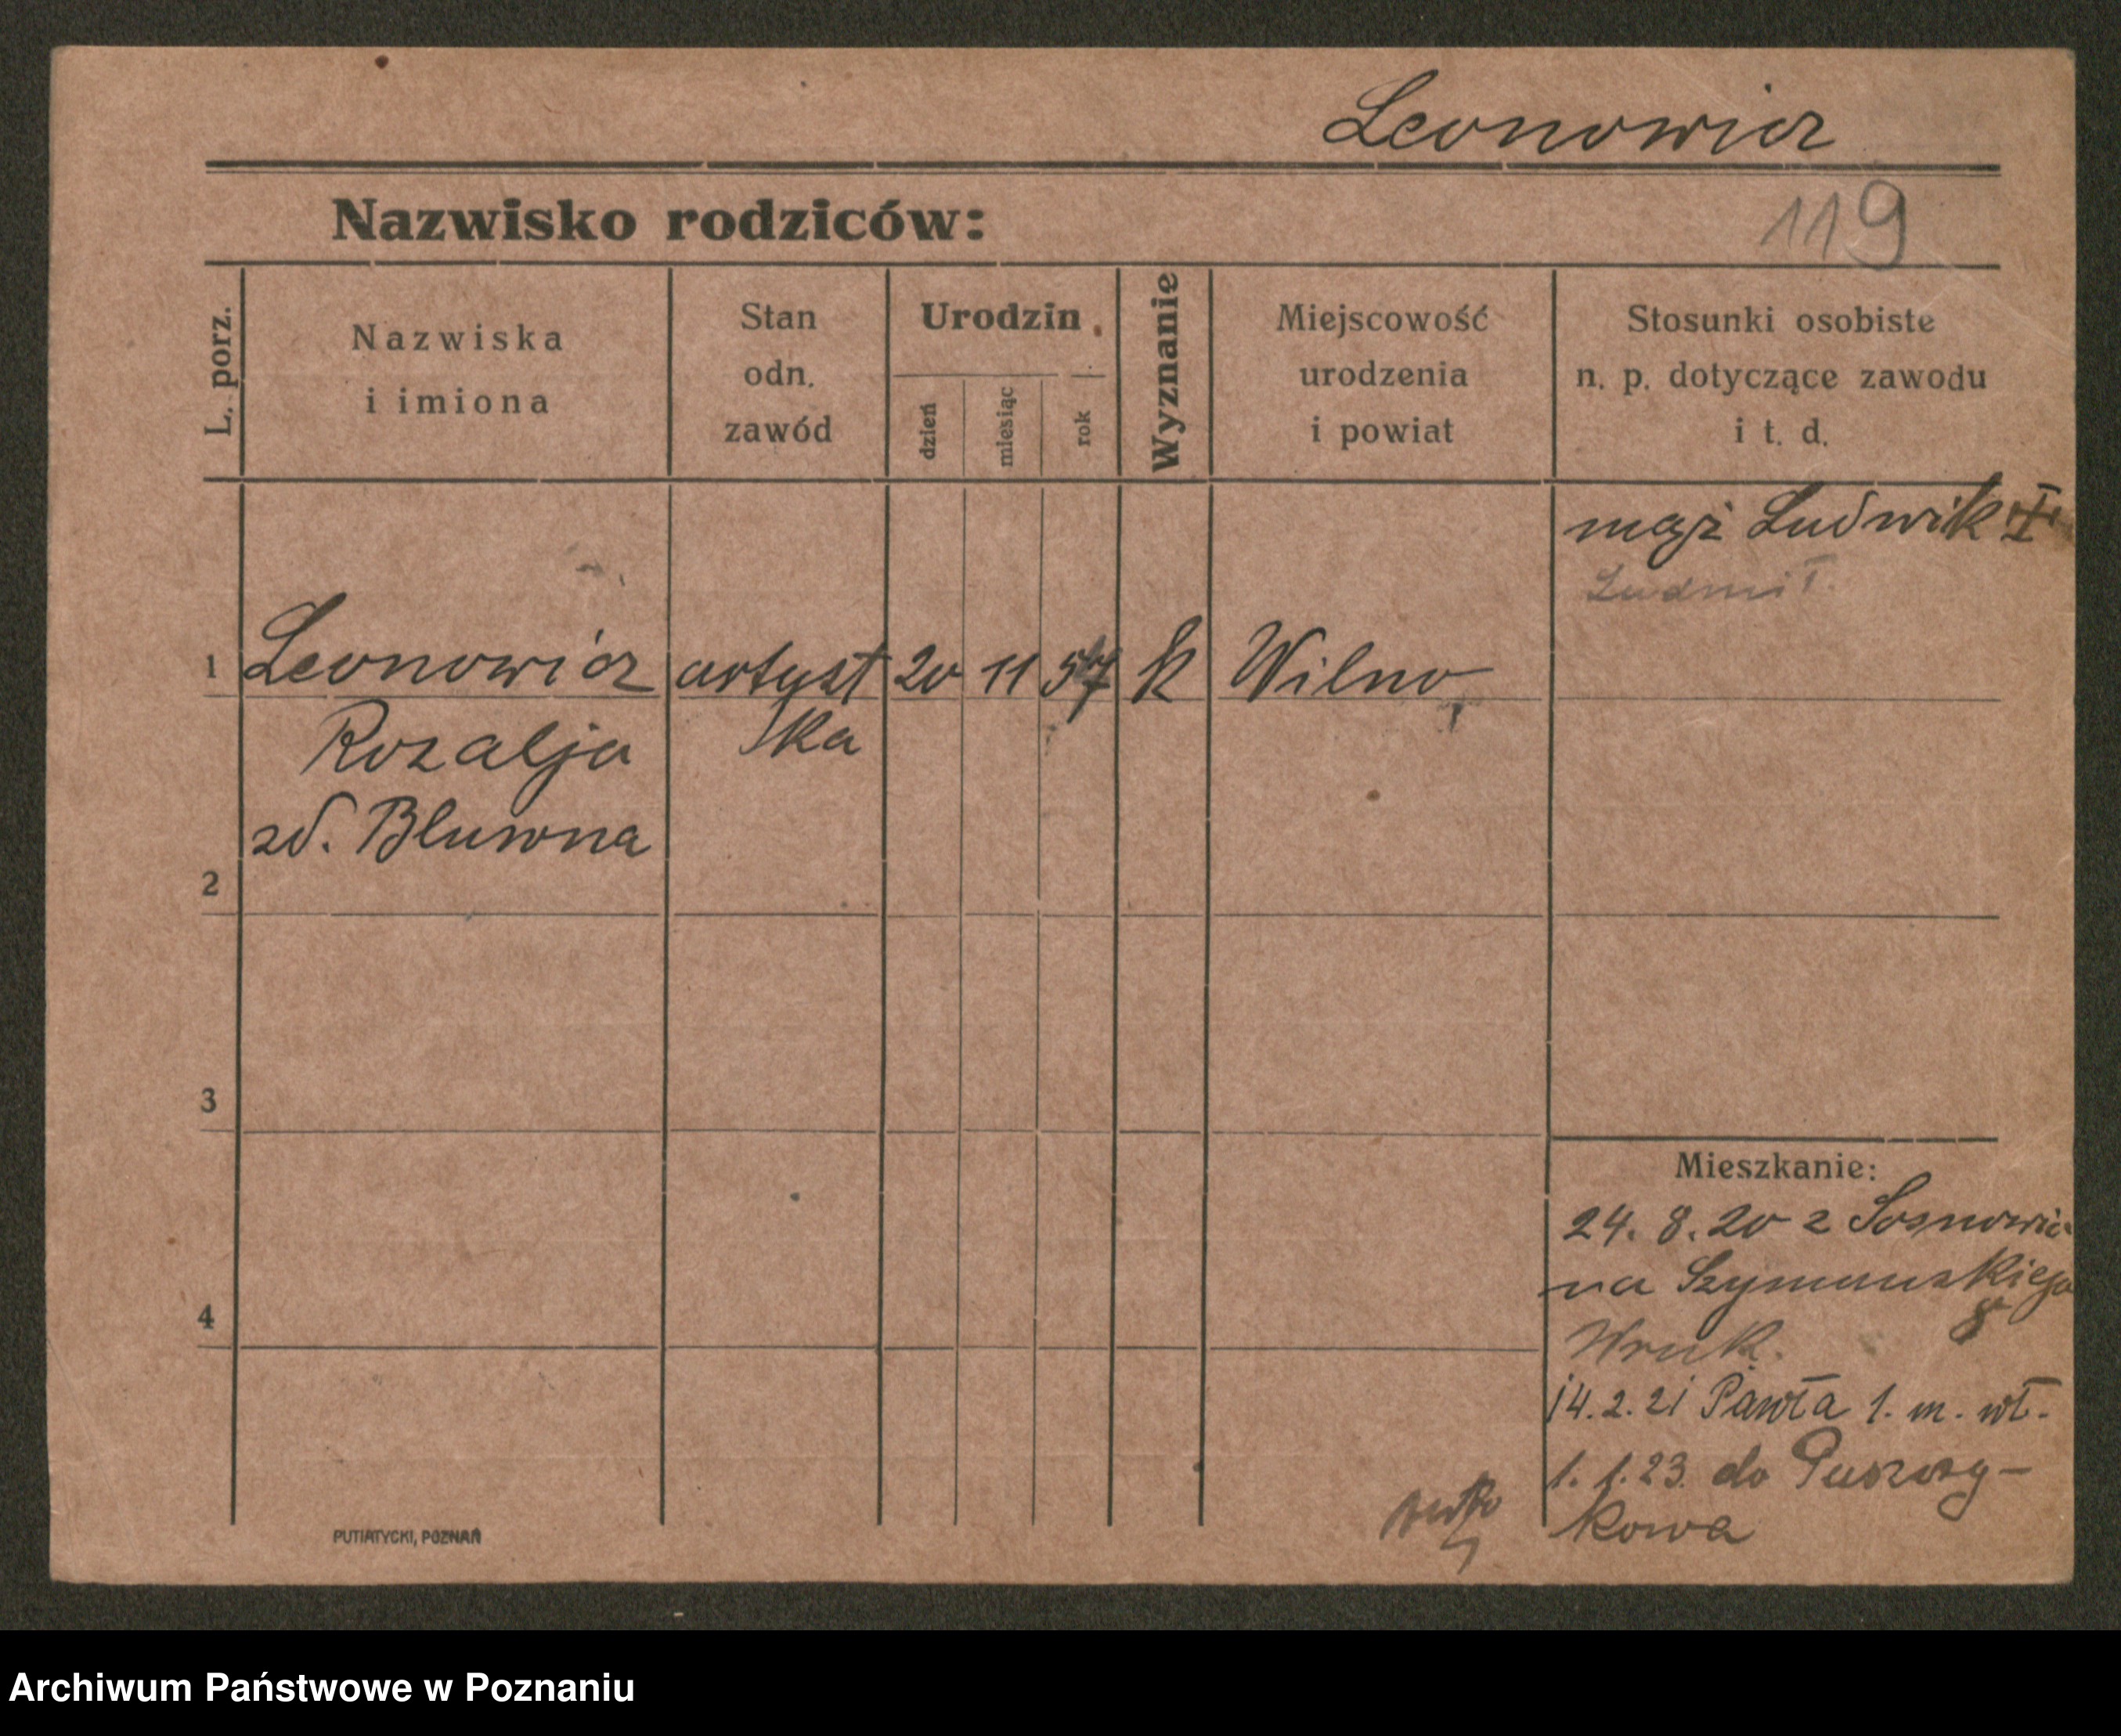 Leonowicz
119
Nazwisko rodziców:
L. porz.
Nazwiska
i imiona
Stan
odn.
zawód
Urodzin
dzień
miesiąc
rok
Wyznanie
Miejscowość
urodzenia
i powiat
Stosunki osobiste
n. p. dotyczące zawodu
i t. d.
mąż Ludwik
1 Leonowicz artyst 20 11 57 k Wilno
Rozalja ka
zd. Bluwna
2
3
4
Mieszkanie:
24. 8. 20 z Sosnowic
na Szymanskiego
8
14. 2. 21 Pawła 1. m. wł.
1. 1. 23. do Puszczy-
kowa
PUTIATYCKI, POZNAŃ
Archiwum Państwowe w Poznaniu